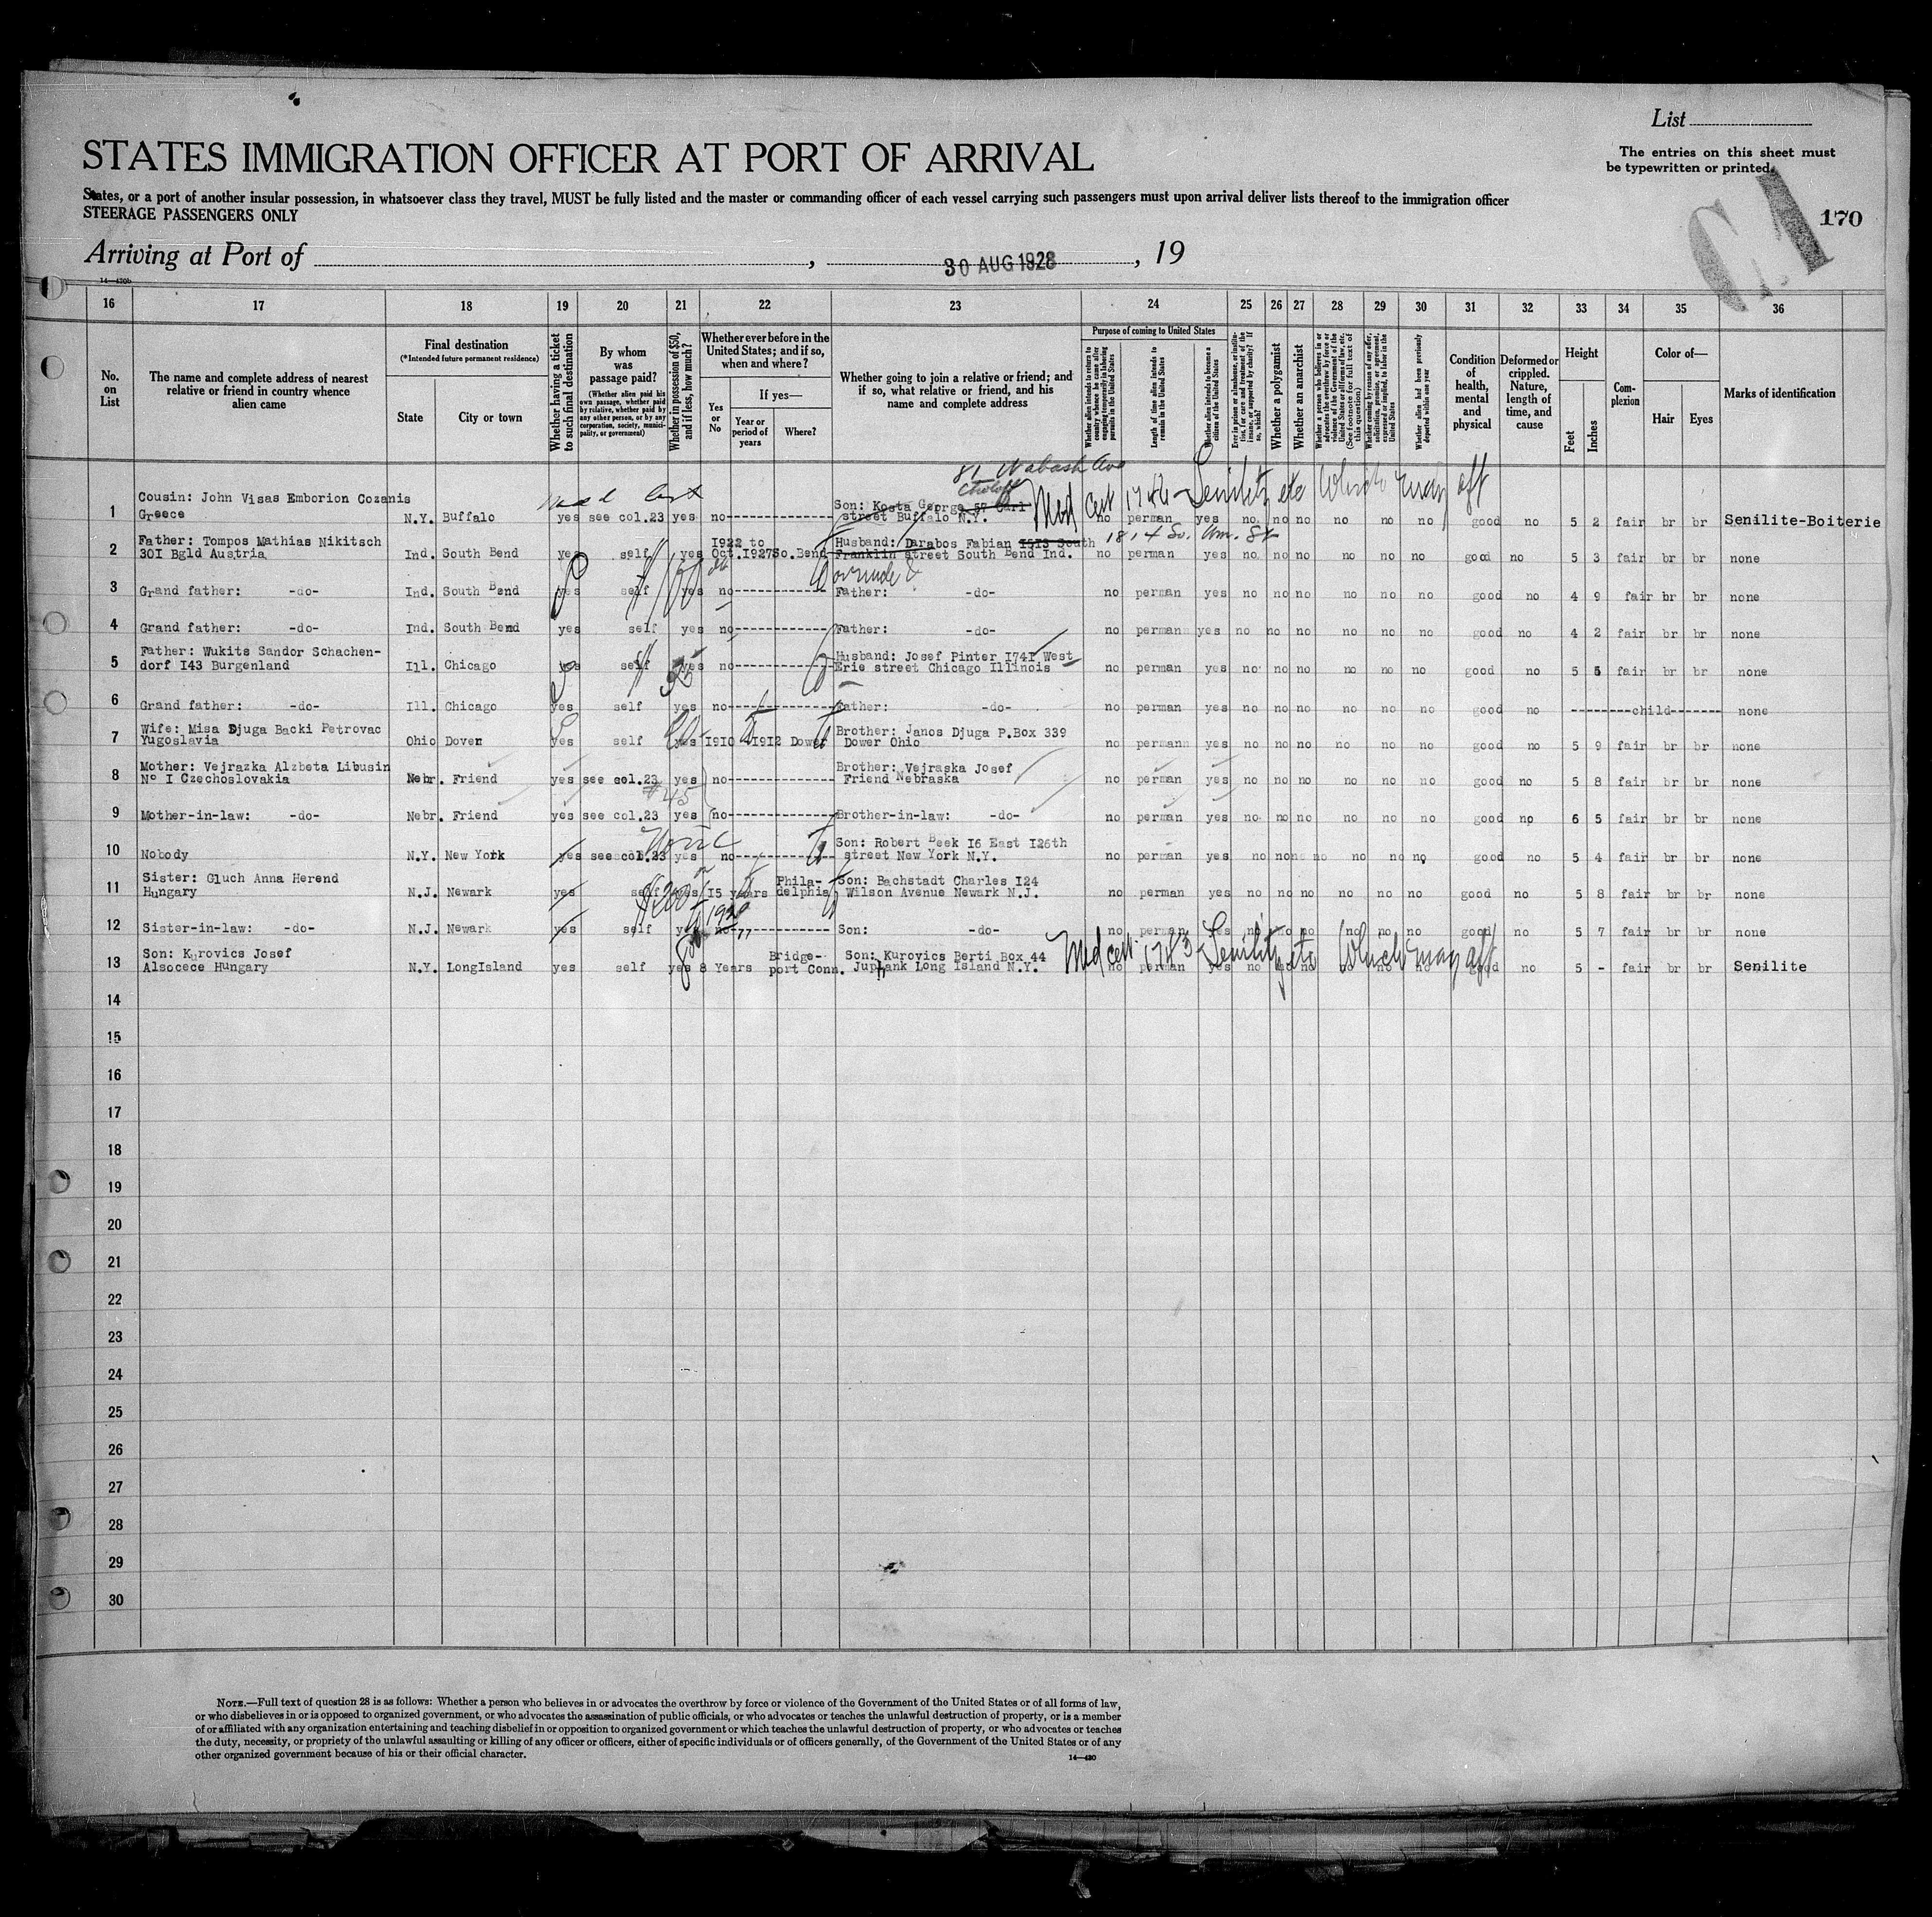 List
STATES IMMIGRATION OFFICER AT PORT OF ARRIVAL
The entries on this sheet must
be typewritten or printed.
States, or a port of another insular possession, in whatsoever class they travel, MUST be fully listed and the master or commanding officer of each vessel carrying such passengers must upon arrival deliver lists thereof to the immigration officer
STEERAGE PASSENGERS ONLY
170
Arriving at Port of , 30 AUG 1928 , 19
14—430b
16 17 18 19 20 21 22 23 24 25 26 27 28 29 30 31 32 33 34 35 36
No. on List
The name and complete address of nearest relative or friend in country whence alien came
Final destination
(*Intended future permanent residence)
State
City or town
Whether having a ticket to such final destination
By whom was passage paid?
(Whether alien paid his own passage, whether paid by relative, whether paid by any other person, or by any corporation, society, municipality, or government)
Whether in possession of $50, and if less, how much?
Whether ever before in the United States; and if so, when and where?
Yes or No
If yes—
Year or period of years
Where?
Whether going to join a relative or friend; and if so, what relative or friend, and his name and complete address
Purpose of coming to United States
Whether alien intends to return to country whence he came after engaging temporarily in laboring pursuits in the United States
Length of time alien intends to remain in the United States
Whether alien intends to become a citizen of the United States
Ever in prison or almshouse, or institution, for care and treatment of the insane, or supported by charity? If so, which?
Whether a polygamist
Whether an anarchist
Whether a person who believes in or advocates the overthrow by force or violence of the Government of the United States or all forms of law, etc. (See footnote for full text of this question)
Whether coming by reason of any offer, solicitation, promise, or agreement, expressed or implied, to labor in the United States
Whether alien had been previously deported within one year
Condition of health, mental and physical
Deformed or crippled. Nature, length of time, and cause
Height
Feet
Inches
Complexion
Color of—
Hair
Eyes
Marks of identification
81 Wabash Ave
Med Cert 1746 - Senility etc which may aff
1 Cousin: John Visas Emborion Cozanis
Greece N.Y. Buffalo yes see col.23 yes no Son: Kosta George 57 Carl
street Buffalo N.Y. no perman yes no no no no no no good no 5 2 fair br br Senilite-Boiterie
2 Father: Tompos Mathias Nikitsch
30I Bgld Austria Ind. South Bend yes self yes 1922 to
Oct.1927 So.Bend Husband: Darabos Fabian I5I3 South
Franklin street South Bend Ind. 1814 So. no perman yes no no no no no no good no 5 3 fair br br none
3 Grand father: -do- Ind. South Bend yes self yes no Father: -do- no perman yes no no no no no no good no 4 9 fair br br none
4 Grand father: -do- Ind. South Bend yes self yes no Father: -do- no perman yes no no no no no no good no 4 2 fair br br none
5 Father: Wukits Sandor Schachen-
dorf I43 Burgenland Ill. Chicago yes self 25 yes no Husband: Josef Pinter I74I West
Erie street Chicago Illinois no perman yes no no no no no no good no 5 5 fair br br none
6 Grand father: -do- Ill. Chicago yes self yes no Father: -do- no perman yes no no no no no no good no child none
7 Wife: Misa Djuga Backi Petrovac
Yugoslavia Ohio Dover yes self yes I9I0 I9I2 Dower Brother: Janos Djuga P.Box 339
Dower Ohio no perman yes no no no no no no good no 5 9 fair br br none
8 Mother: Vejrazka Alzbeta Libusin
No I Czechoslovakia Nebr. Friend yes see col.23 yes no Brother: Vejraska Josef
Friend Nebraska no perman yes no no no no no no good no 5 8 fair br br none
$45
9 Mother-in-law: -do- Nebr. Friend yes see col.23 yes no Brother-in-law: -do- no perman yes no no no no no no good no 6 5 fair br br none
10 Nobody N.Y. New York yes see col.23 yes no Son: Robert Beek I6 East I26th
street New York N.Y. no perman yes no no no no no no good no 5 4 fair br br none
None
11 Sister: Gluch Anna Herend
Hungary N.J. Newark yes self yes I5 years Phila-
delphia Son: Bachstadt Charles I24
Wilson Avenue Newark N.J. no perman yes no no no no no no good no 5 8 fair br br none
$200
12 Sister-in-law: -do- N.J. Newark yes self yes no Son: -do- no perman yes no no no no no no good no 5 7 fair br br none
Med cert. 1743 - Senility etc which may aff
13 Son: Kurovics Josef
Alsocece Hungary N.Y. LongIsland yes self yes 8 Years Bridge-
port Conn. Son: Kurovics Berti Box 44
Juphank Long Island N.Y. no perman yes no no no no no no good no 5 - fair br br Senilite
14
15
16
17
18
19
20
21
22
23
24
25
26
27
28
29
30
NOTE.—Full text of question 28 is as follows: Whether a person who believes in or advocates the overthrow by force or violence of the Government of the United States or of all forms of law,
or who disbelieves in or is opposed to organized government, or who advocates the assassination of public officials, or who advocates or teaches the unlawful destruction of property, or is a member
of or affiliated with any organization entertaining and teaching disbelief in or opposition to organized government or which teaches the unlawful destruction of property, or who advocates or teaches
the duty, necessity, or propriety of the unlawful assaulting or killing of any officer or officers, either of specific individuals or of officers generally, of the Government of the United States or of any
other organized government because of his or their official character.
14—430